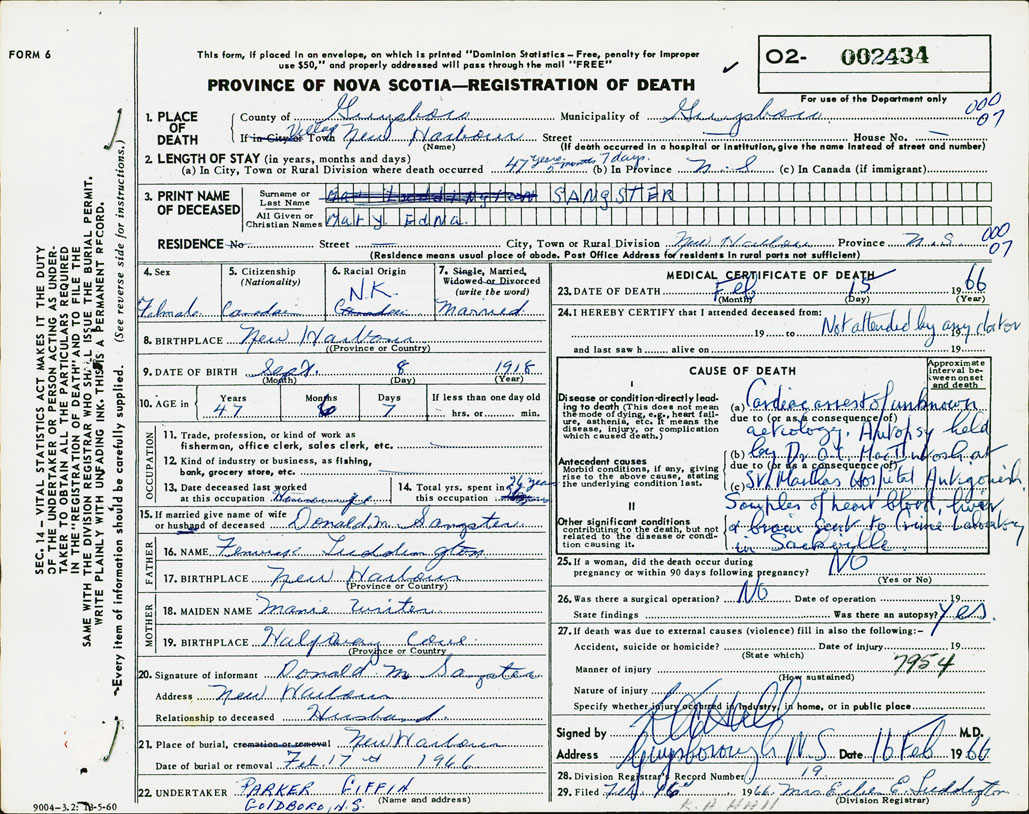 FORM 6
This form, if placed in an envelope, on which is printed "Dominion Statistics – Free, penalty for improper
use $50," and properly addressed will pass through the mail "FREE"
✓
O2- 002434
PROVINCE OF NOVA SCOTIA—REGISTRATION OF DEATH
For use of the Department only
000
07
1. PLACE OF DEATH
County of Guysboro Municipality of Guysboro
If in City or Town Village New Harbour Street — House No. —
(Name) (If death occurred in a hospital or institution, give the name instead of street and number)
2. LENGTH OF STAY (in years, months and days)
(a) In City, Town or Rural Division where death occurred 47 years 5 months 7 days. (b) In Province N.S (c) In Canada (if immigrant)
3. PRINT NAME OF DECEASED
Surname or Last Name SANGSTER
All Given or Christian Names Mary Edna
RESIDENCE No. Street — City, Town or Rural Division New Harbour Province N.S
000
07
(Residence means usual place of abode. Post Office Address for residents in rural parts not sufficient)
4. Sex
Female
5. Citizenship
(Nationality)
Canadain
6. Racial Origin
N.K.
Canadain
7. Single, Married,
Widowed or Divorced
(write the word)
Married
8. BIRTHPLACE New Harbour
(Province or Country)
9. DATE OF BIRTH Sept. 8 1918
(Month) (Day) (Year)
10. AGE in Years 47 Months 6 Days 7
If less than one day old
hrs. or min.
OCCUPATION
11. Trade, profession, or kind of work as
fisherman, office clerk, sales clerk, etc.
12. Kind of industry or business, as fishing,
bank, grocery store, etc.
13. Date deceased last worked
at this occupation
14. Total yrs. spent in
this occupation 26 years
15. If married give name of wife
or husband of deceased Donald M Sangster
FATHER
16. NAME Fenwick Luddington
17. BIRTHPLACE New Harbour
(Province or Country)
MOTHER
18. MAIDEN NAME Mamie
19. BIRTHPLACE Halfway Cove
(Province or Country)
20. Signature of informant Donald M Sangster
Address New Harbour
Relationship to deceased Husband
21. Place of burial, cremation or removal New Harbour
Date of burial or removal Feb. 17 1966
22. UNDERTAKER PARKER GIFFIN
GOLDBORO, N.S. (Name and address)
9004-3.2: 18-5-60
MEDICAL CERTIFICATE OF DEATH
23. DATE OF DEATH Feb 15 1966
(Month) (Day) (Year)
24. I HEREBY CERTIFY that I attended deceased from:
19 to Not attended by any doctor
and last saw h alive on 19
CAUSE OF DEATH
Approximate
interval be-
tween onset
and death
I
Disease or condition directly lead-
ing to death (This does not mean
the mode of dying, e.g., heart fail-
ure, asthenia, etc. It means the
disease, injury, or complication
which caused death.)
(a) Cardiac arrest of unknown
due to (or as a consequence of)
aetiology. Autopsy held
Antecedent causes
Morbid conditions, if any, giving
rise to the above cause, stating
the underlying condition last.
(b) by Dr. at
due to (or as a consequence of)
(c) St. Marthas Hospital Antigonish.
II
Other significant conditions
contributing to the death, but not
related to the disease or condi-
tion causing it.
Samples of heart blood, liver
& brain sent to Crime Laboratory
in Sackville.
25. If a woman, did the death occur during
pregnancy or within 90 days following pregnancy? NO
(Yes or No)
26. Was there a surgical operation? NO Date of operation 19
State findings Was there an autopsy? Yes.
27. If death was due to external causes (violence) fill in also the following:–
Accident, suicide or homicide? Date of injury 19
(State which)
7954
Manner of injury
(How sustained)
Nature of injury
Specify whether injury occurred in industry, in home, or in public place
Signed by M.D.
Address Guysborough N.S. Date 16 Feb 1966
28. Division Registrar's Record Number 19
29. Filed Feb 16 1966. Mrs Eileen E. Luddington
(Division Registrar)
SEC. 14 – VITAL STATISTICS ACT MAKES IT THE DUTY
OF THE UNDERTAKER OR PERSON ACTING AS UNDER-
TAKER TO OBTAIN ALL THE PARTICULARS REQUIRED
IN THE "REGISTRATION OF DEATH" AND TO FILE THE
SAME WITH THE DIVISION REGISTRAR WHO SHALL ISSUE THE BURIAL PERMIT.
WRITE PLAINLY WITH UNFADING INK. THIS IS A PERMANENT RECORD.
Every item of information should be carefully supplied. (See reverse side for instructions.)